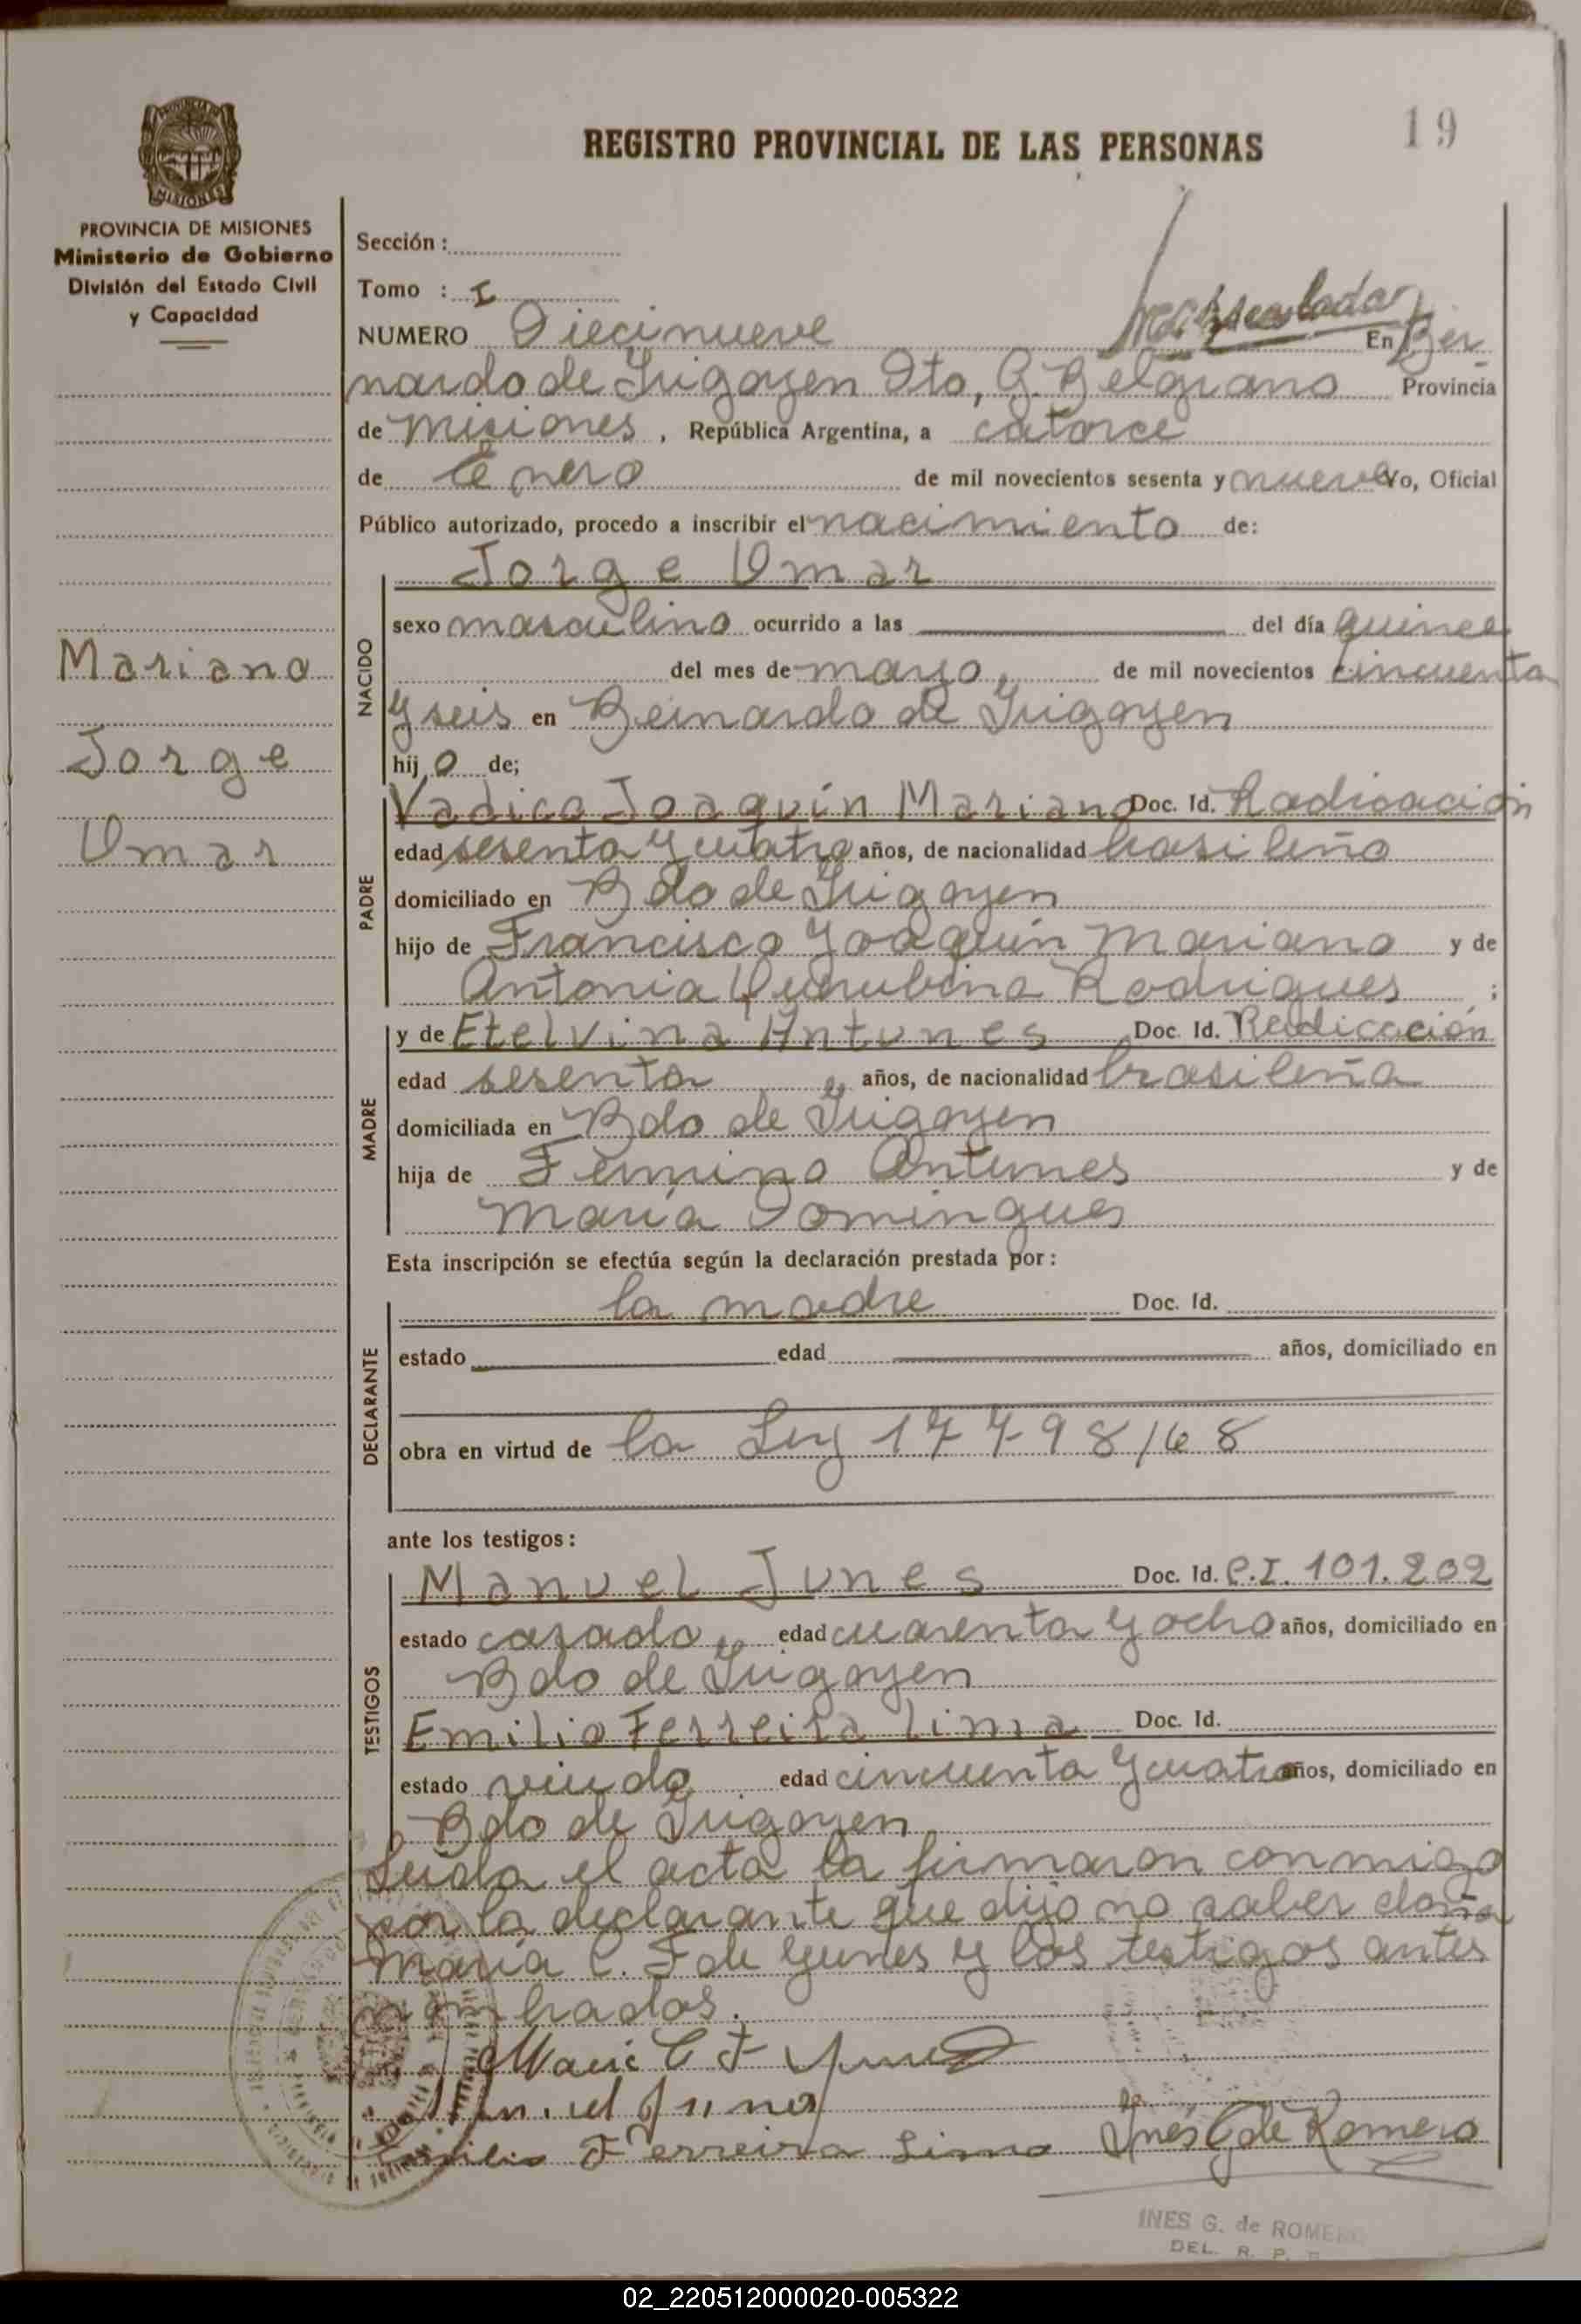 19
REGISTRO PROVINCIAL DE LAS PERSONAS
PROVINCIA DE MISIONES
MISIONES
PROVINCIA DE MISIONES
Ministerio de Gobierno
División del Estado Civil
y Capacidad
Mariano
Jorge
Omar
Sección :
Tomo : I
NUMERO Diecinueve En Ber
nardo de Irigoyen Dto, G. Belgrano Provincia
de Misiones, República Argentina, a catorce
de Enero de mil novecientos sesenta y nueve Yo, Oficial
Público autorizado, procedo a inscribir el nacimiento de:
NACIDO
Jorge Omar
sexo masculino ocurrido a las del día quince
del mes de mayo, de mil novecientos cincuenta
y seis en Bernardo de Irigoyen
hij o de;
PADRE
Vadico Joaquín Mariano Doc. Id. Radicación
edad sesenta y cuatro años, de nacionalidad brasileño
domiciliado en Bdo de Irigoyen
hijo de Francisco Joaquín Mariano y de
Antonia Querubina Rodrigues ;
MADRE
y de Etelvina Antunes Doc. Id. Radicación
edad sesenta años, de nacionalidad brasileña
domiciliada en Bdo de Irigoyen
hija de Antunes y de
María Domingues
Esta inscripción se efectúa según la declaración prestada por:
DECLARANTE
la madre Doc. Id.
estado edad años, domiciliado en
obra en virtud de la Ley 17798/68
ante los testigos:
TESTIGOS
Manuel Junes Doc. Id. C.I. 101.202
estado casado, edad cuarenta y ocho años, domiciliado en
Bdo de Irigoyen
Emilio Ferreira Lima Doc. Id.
estado viudo edad cincuenta y cuatro años, domiciliado en
Bdo de Irigoyen
Leída el acta la firmaron conmigo
por la declarante que dijo no saber doña
María C. F de Yunes y los testigos antes
nombrados.
Maria C F Yunes
Manuel Junes
Emilio Ferreira Lima Inés G de Romero
INES G. de ROMERO
DEL. R. P.
02_220512000020-005322